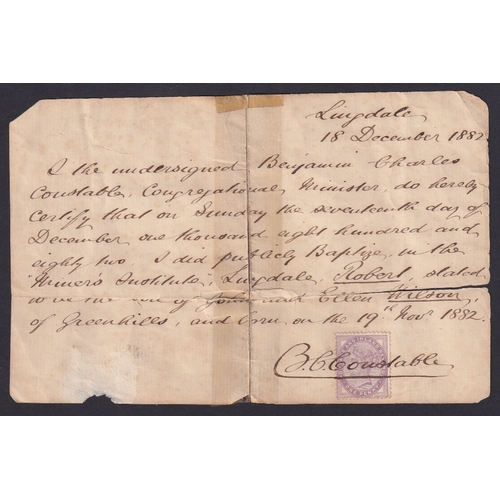 Lingdale,
18 December 1882.
I the undersigned Benjamin Charles
Constable, Congregational Minister, do hereby
certify that on Sunday the seventeenth day of
December one thousand eight hundred and
eighty two. I did publicly Baptize, in the
"Miner's Institute", Lingdale, Robert, stated
to be the of and Ellen Wilson,
of Greenhills, and born on the 19th Novr 1882.
B. C. Constable
ONE PENNY